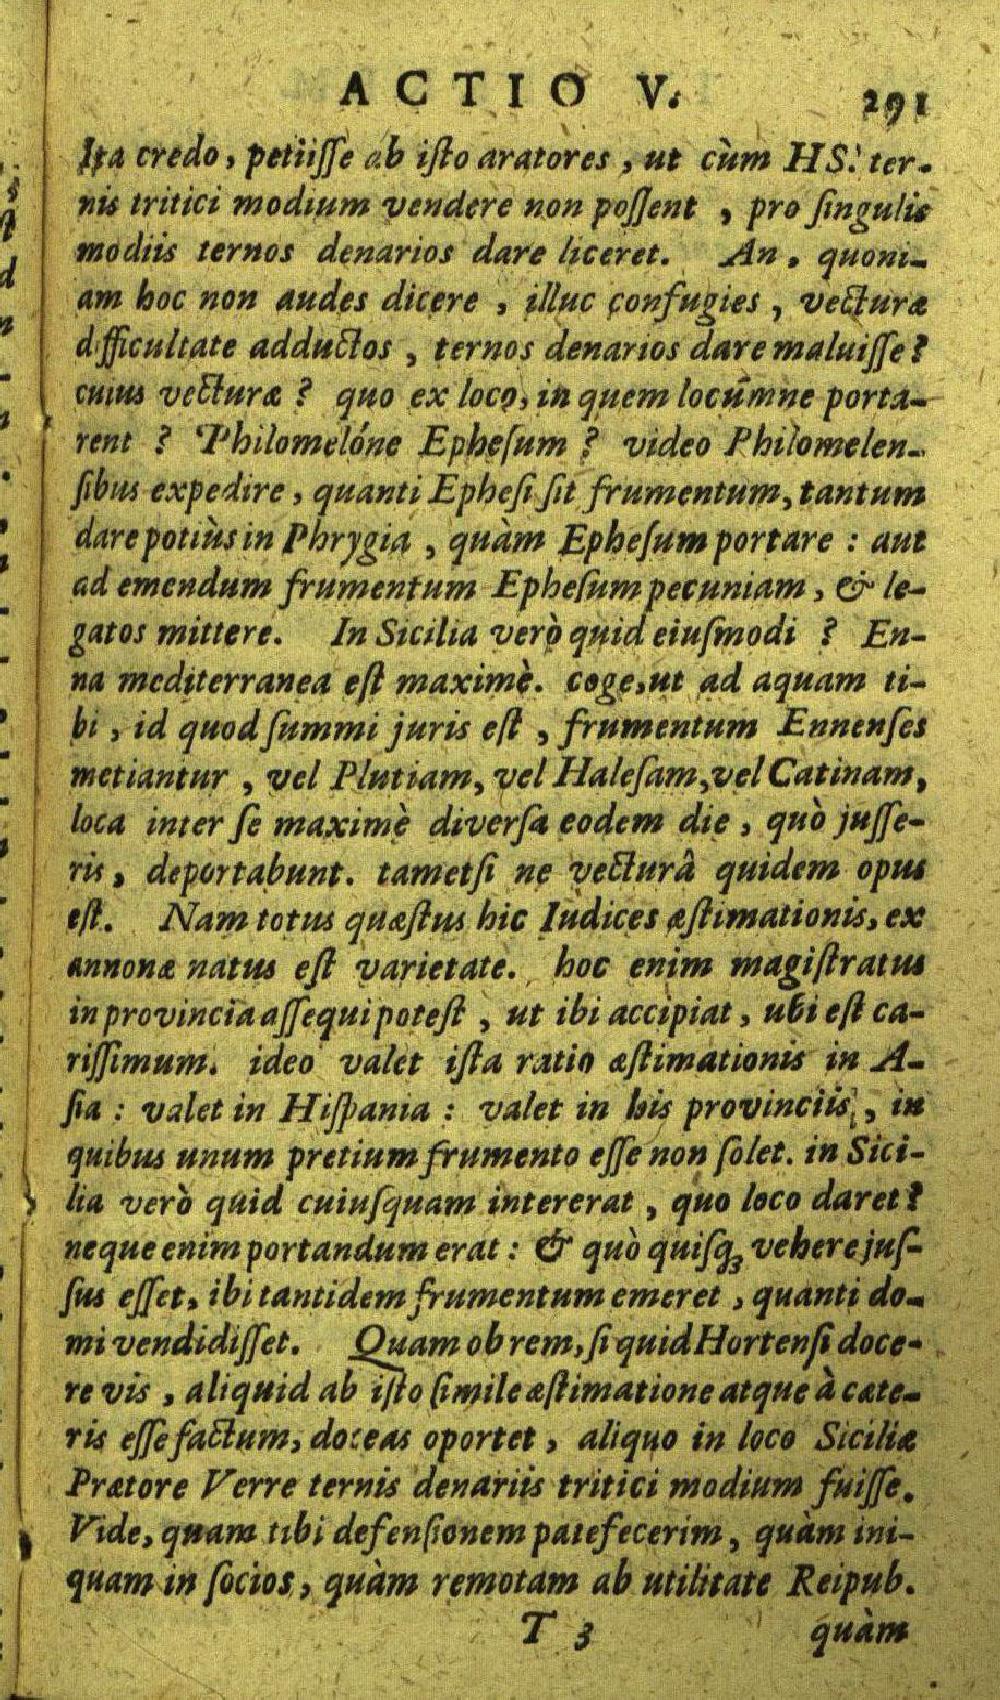 ACTIO V. 291
Ita credo, petiiſſe ab iſto aratores, ut cùm HS. ter-
nis tritici modium vendere non poſſent, pro ſingulis
modiis ternos denarios dare liceret. An, quoni-
am hoc non audes dicere, illuc confugies, vecturæ
difficultate adductos, ternos denarios dare maluiſſe?
cuius vecturæ? quo ex loco, in quem locúmne porta-
rent? Philomelóne Epheſum? video Philomelen-
ſibus expedire, quanti Epheſi ſit frumentum, tantum
dare potiùs in Phrygia, quàm Epheſum portare: aut
ad emendum frumentum Epheſum pecuniam, & le-
gatos mittere. In Sicilia verò quid eiuſmodi? En-
na mediterranea eſt maximè. coge, ut ad aquam ti-
bi, id quod ſummi juris eſt, frumentum Ennenſes
metiantur, vel Plutiam, vel Haleſam, vel Catinam,
loca inter ſe maximè diverſa eodem die, quò juſſe-
ris, deportabunt. tametſi ne vecturâ quidem opus
eſt. Nam totus quæſtus hic Iudices æſtimationis, ex
annonæ natus eſt varietate. hoc enim magiſtratus
in provincia aſſequi poteſt, ut ibi accipiat, ubi eſt ca-
riſſimum. ideo valet iſta ratio æſtimationis in A-
ſia: valet in Hiſpania: valet in his provinciis, in
quibus unum pretium frumento eſſe non ſolet. in Sici-
lia verò quid cuiuſquam intererat, quo loco daret?
neque enim portandum erat: & quò quiſq; vehere juſ-
ſus eſſet, ibi tantidem frumentum emeret, quanti do-
mi vendidiſſet. Quam ob rem, ſi quid Hortenſi doce-
re vis, aliquid ab iſto ſimile æſtimatione atque à cæte-
ris eſſe factum, doceas oportet, aliquo in loco Siciliæ
Prætore Verre ternis denariis tritici modium fuiſſe.
Vide, quam tibi defenſionem patefecerim, quàm ini-
quam in ſocios, quàm remotam ab utilitate Reipub.
T 3 quàm